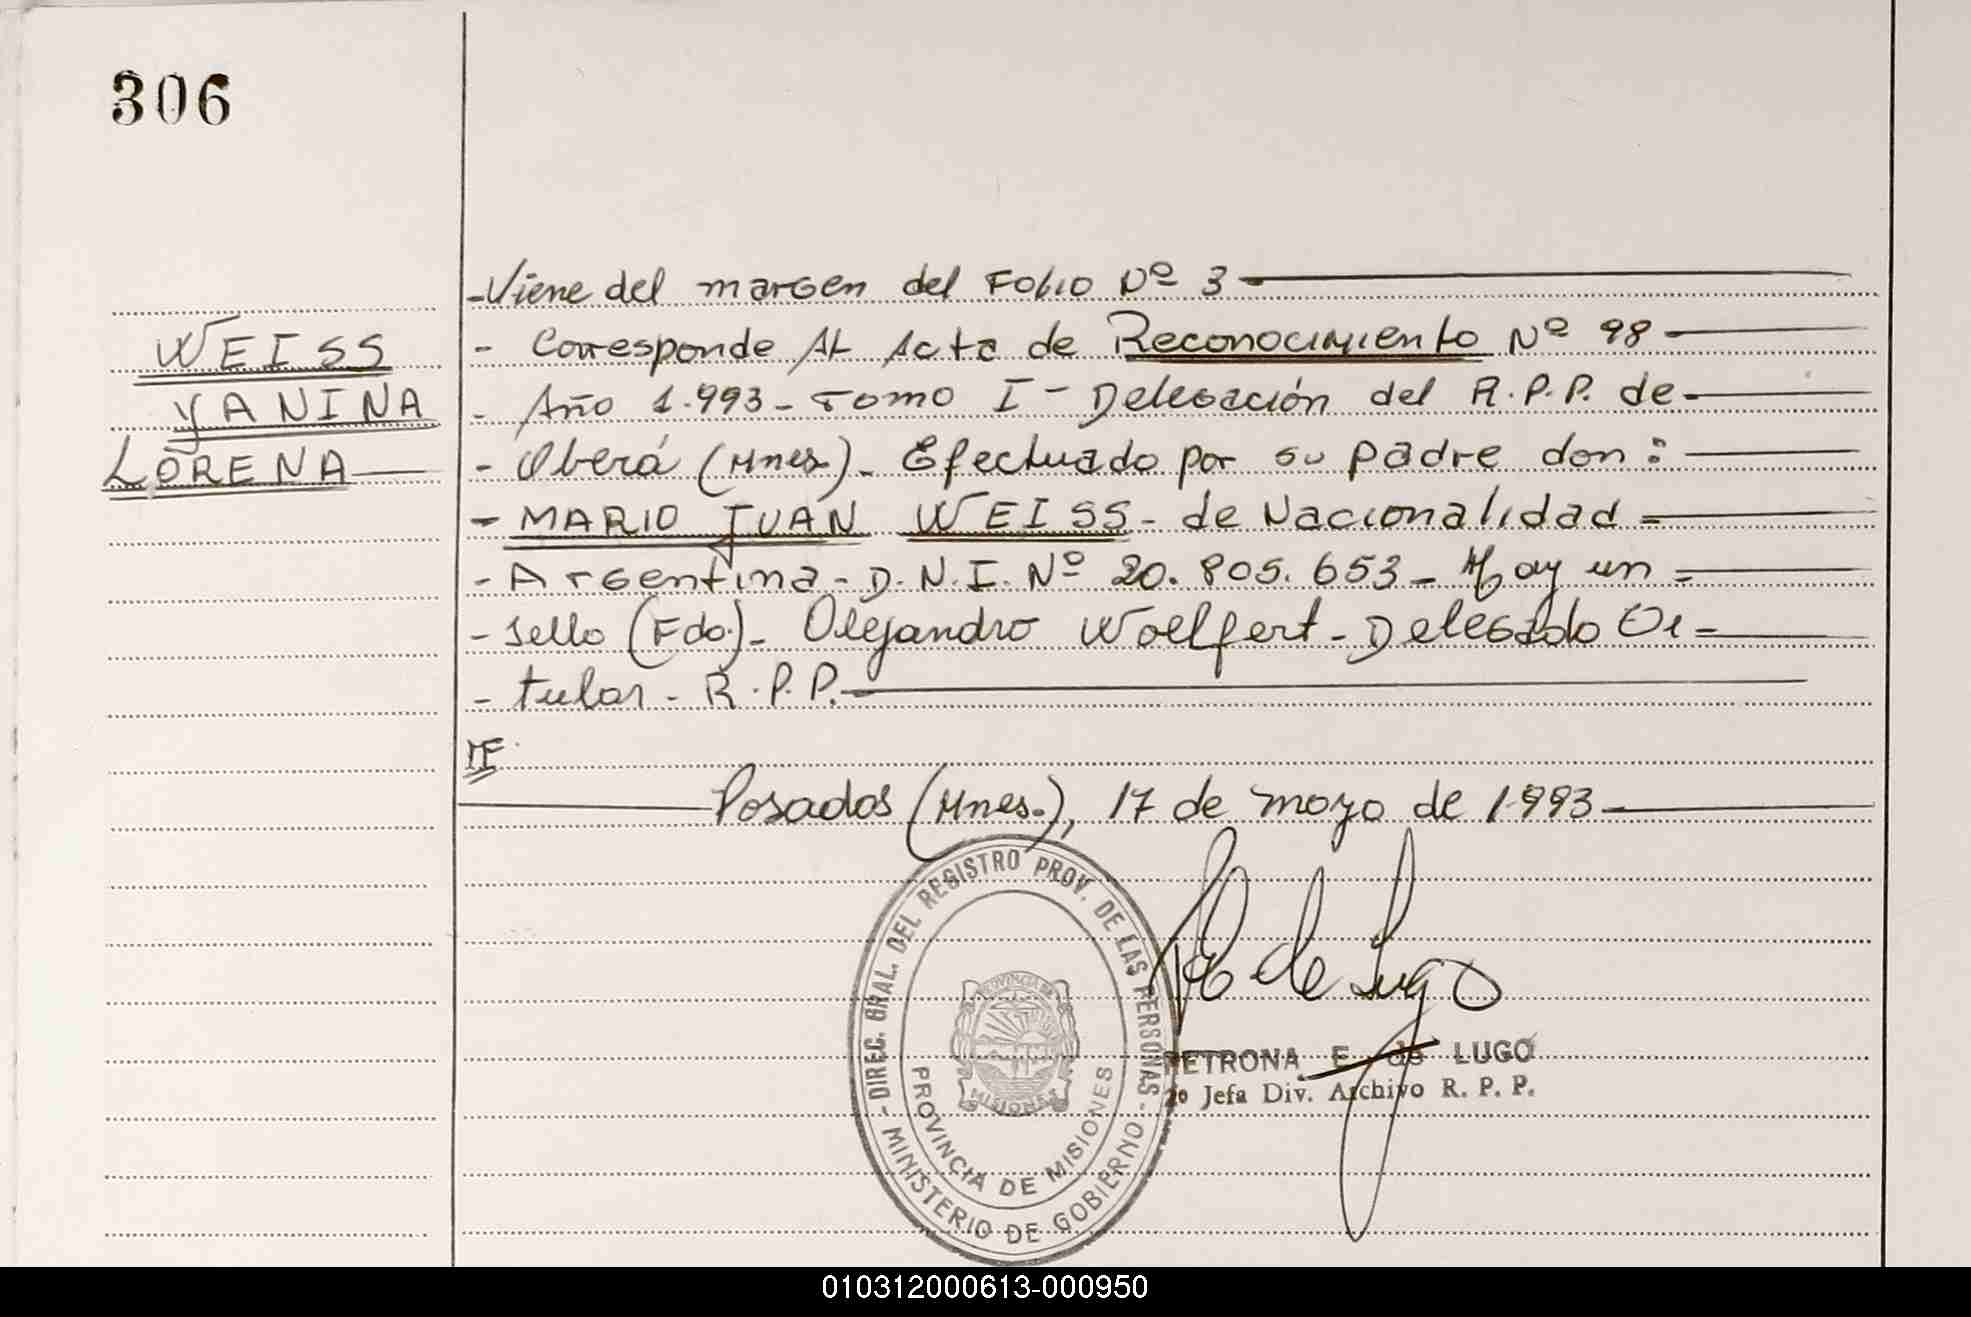 306
WEISS
YANINA
LORENA
-Viene del margen del Folio Nº 3
- Corresponde AL Acta de Reconocimiento Nº 98
- Año 1.993- Tomo I - Delegación del R.P.P. de
- Oberá (Mnes.)- Efectuado por su padre don:
- MARIO JUAN WEISS- de Nacionalidad
- Argentina- D.N.I. Nº 20.805.653- Hay un
- sello (Fdo.)- Alejandro Woelfert- Delegado Ti-
- tular- R.P.P.
Posadas (Mnes.), 17 de mayo de 1.993
de Lugo
DIREC. GRAL. DEL REGISTRO PROV. DE LAS PERSONAS
- MINISTERIO DE GOBIERNO -
PROVINCIA DE MISIONES
PROVINCIA DE
MISIONES
PETRONA E. de LUGO
2º Jefa Div. Archivo R. P. P.
010312000613-000950